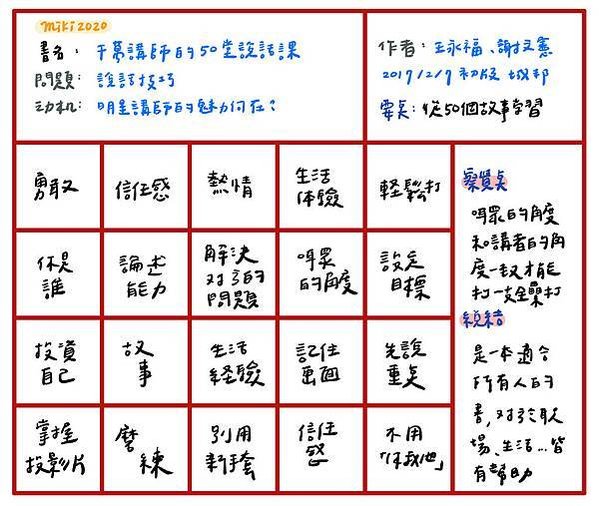 miki2020
書名: 千萬講師的50堂說話課
問題: 說話技巧
动机: 明星講師的魅力何在?
作者: 王永福、謝文憲
2019/12/9 初版 城邦
要点: 從50個故事學習
勇敢
信任感
熱情
生活
体驗
輕鬆打
你是
誰
論述
能力
解決
对方的
問題
听眾
的角度
設定
目標
投資
自己
故
事
生活
經驗
記住
画面
先說
重点
掌握
投影片
磨
練
別用
新套
信任
感
不用
察覺点
听眾的角度
和講者的角
度一致才能
打一支全壘打
總結
是一本適合
所有人的
書,对於職
場、生活...皆
有幫助